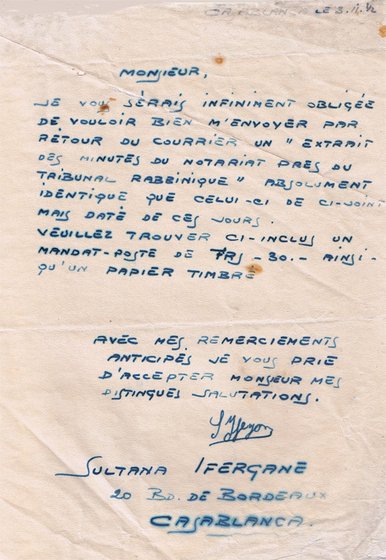 CASABLANCA LE 3.11.42
MONSIEUR,
JE VOUS SERAIS INFINIMENT OBLIGÉE
DE VOULOIR BIEN M'ENVOYER PAR
RÉTOUR DU COURRIER UN " EXTRAIT
DES MINUTES DU NOTARIAT PRÈS DU
TRIBUNAL RABBINIQUE " ABSOLUMENT
IDENTIQUE QUE CELUI-CI DE CI-JOINT
MAIS DATÉ DE CES JOURS.
VEUILLEZ TROUVER CI-INCLUS UN
MANDAT-POSTE DE FRS - 30.- AINSI-
QU'UN PAPIER TIMBRÉ
AVEC MES REMERCIEMENTS
ANTICIPÉS JE VOUS PRIE
D'ACCEPTER MONSIEUR MES
DISTINGUES SALUTATIONS.
SULTANA IFERGANE
20 BD. DE BORDEAUX
CASABLANCA.